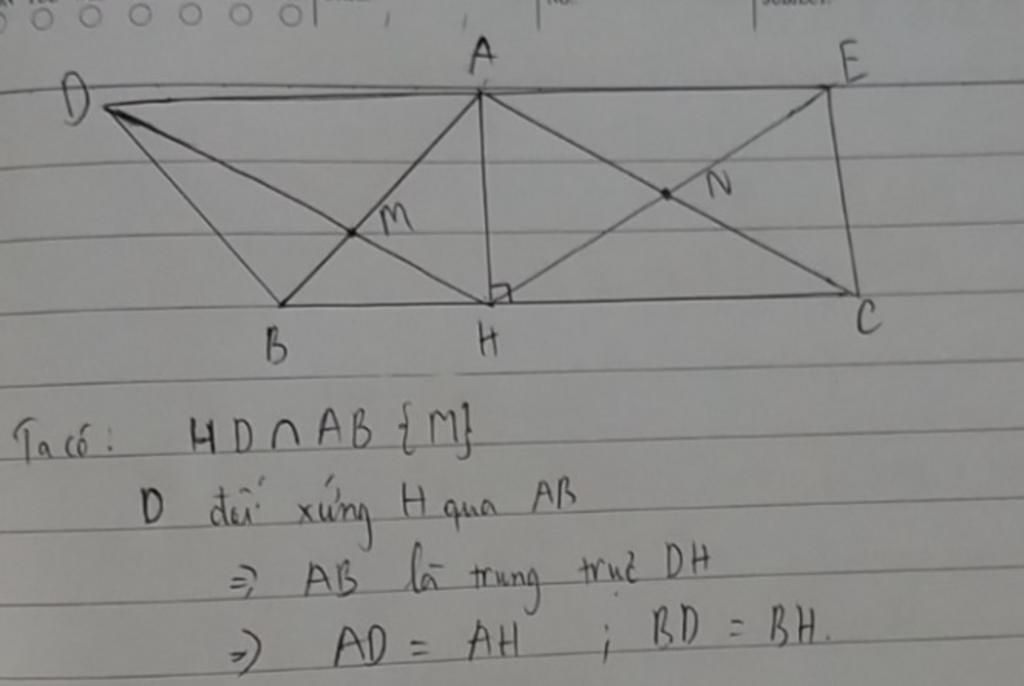 A
E
D
M
N
B
H
C
Ta có: HD ∩ AB {M}
D đối xứng H qua AB
=> AB là trung trực DH
=> AD = AH ; BD = BH.